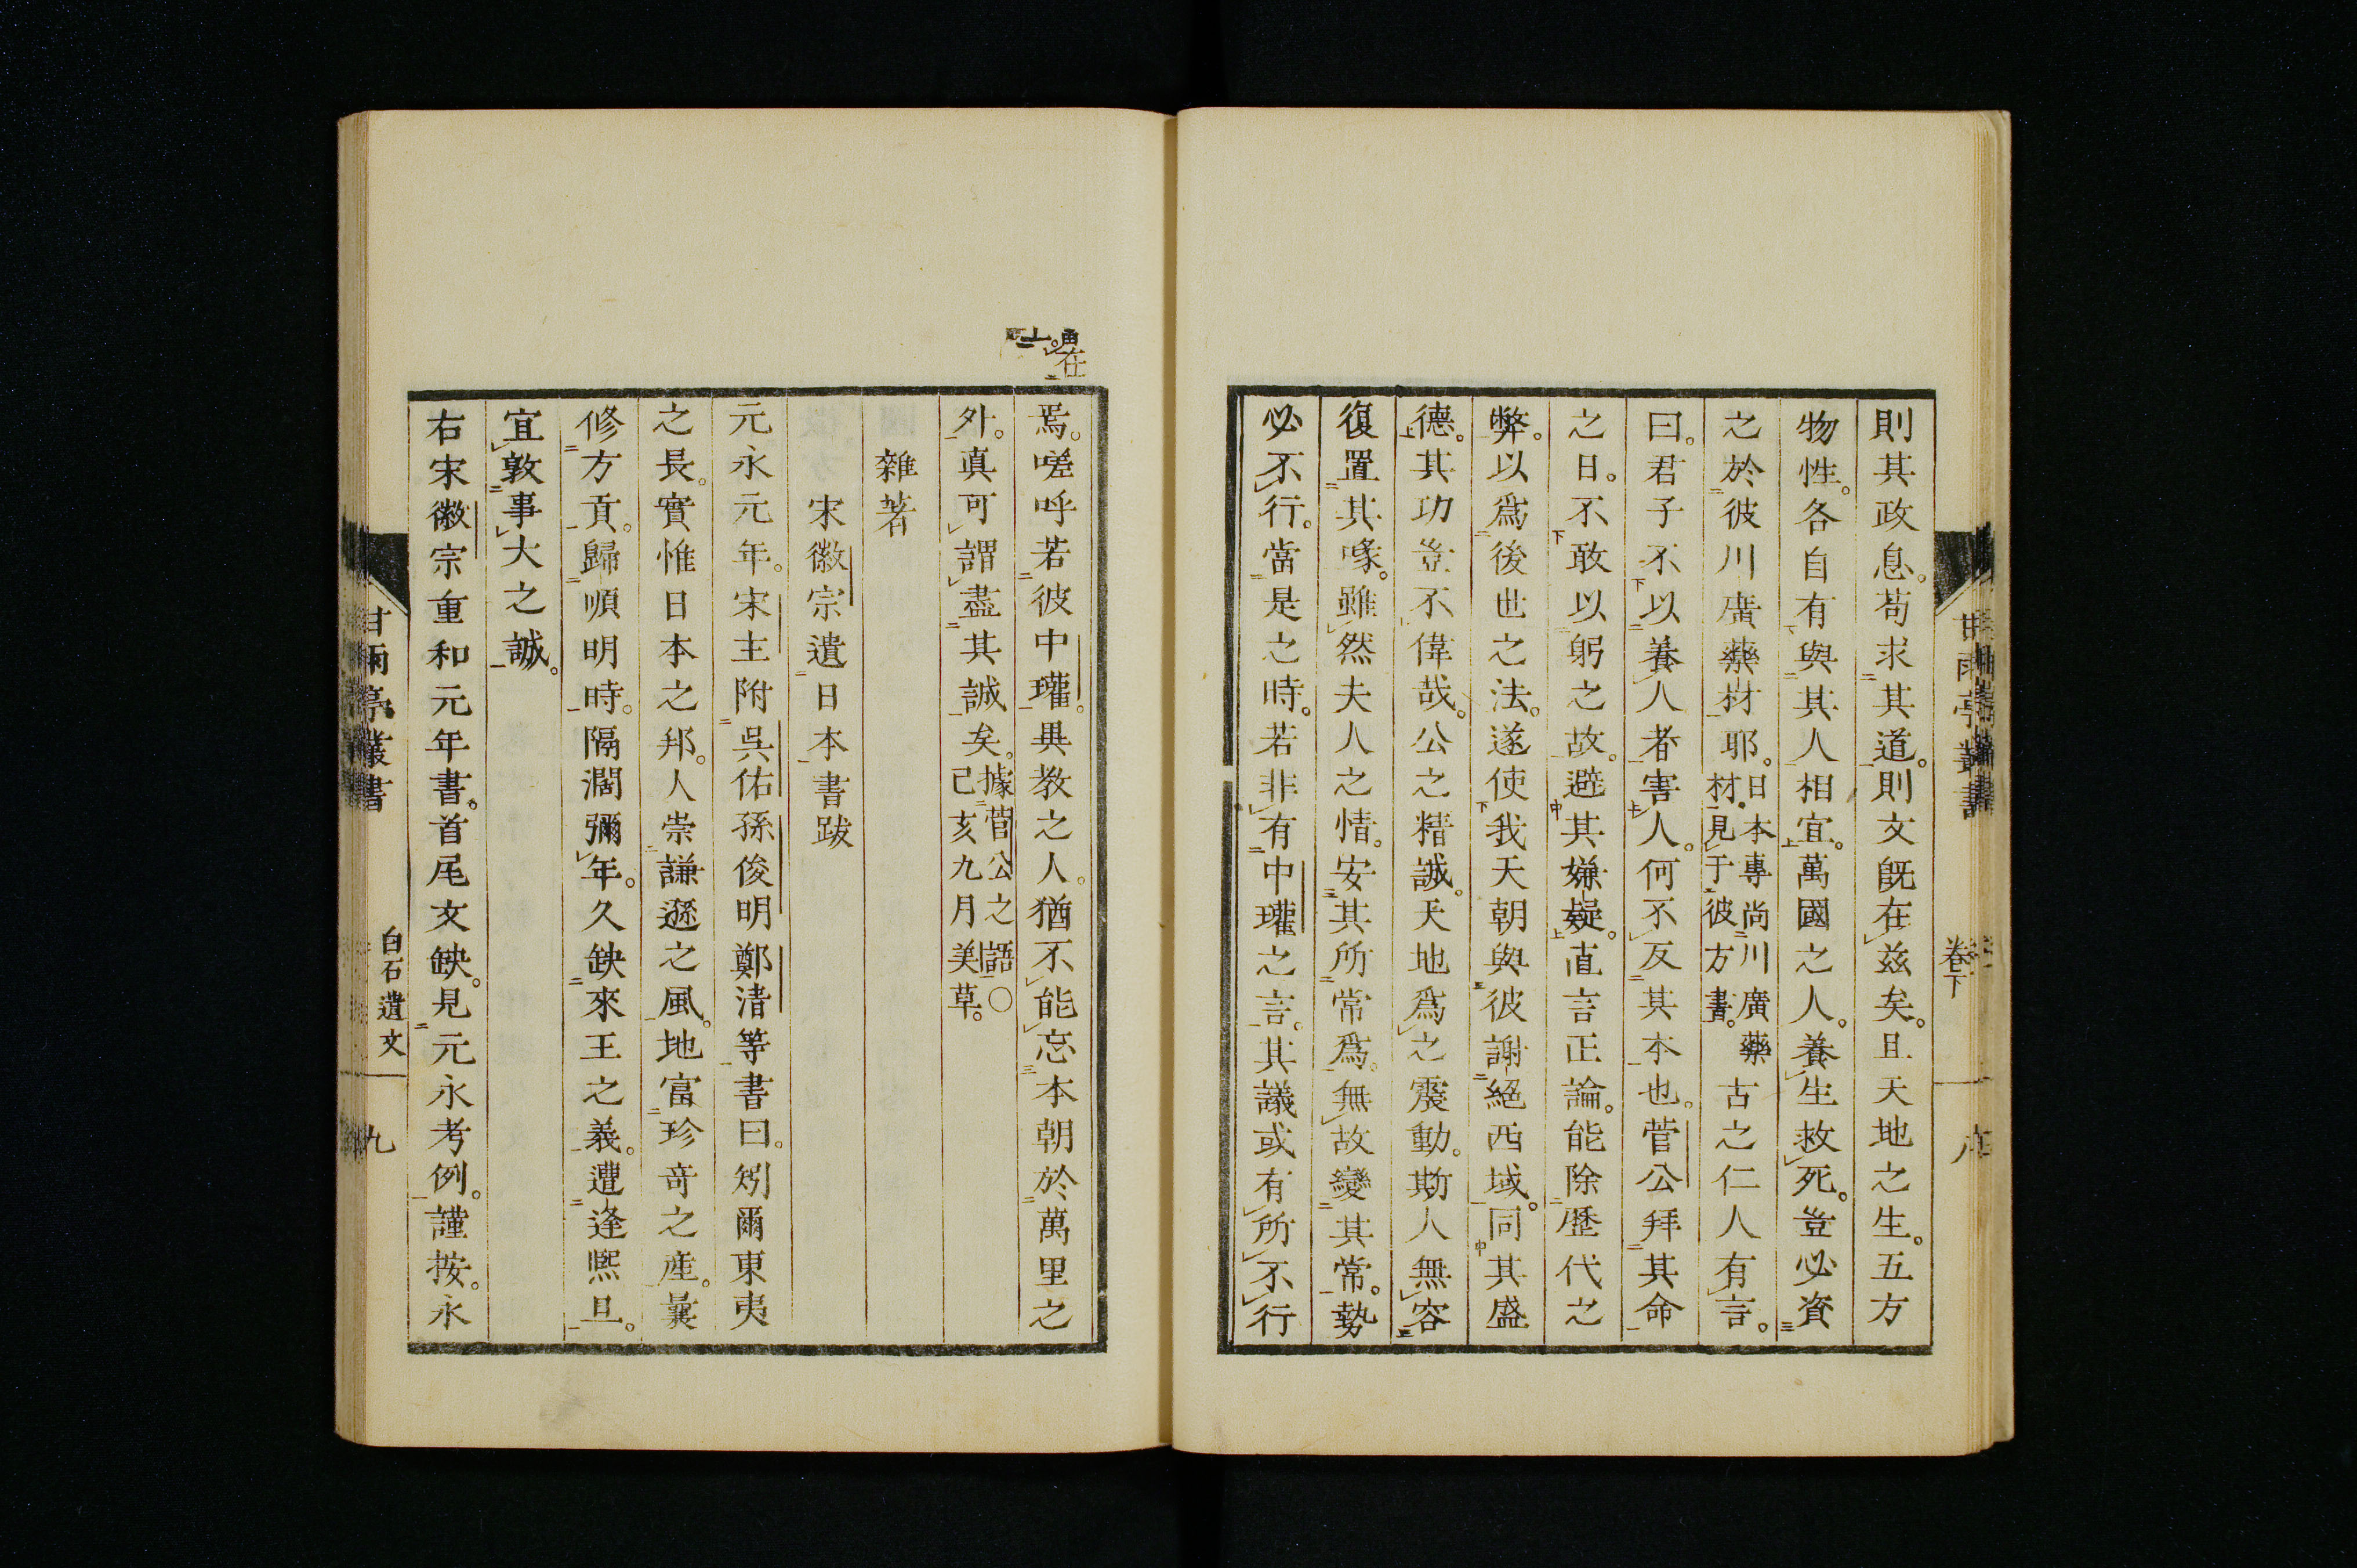 則其政息。苟求其道。則文既在玆矣。且天地之生。五方
物性。各自有與其人相宜。萬國之人。養生救死。豈必資
之於彼川廣藥材耶。日本專尚川廣藥
材。見于彼方書。古之仁人有言。
曰。君子不以養人者害人。何不反其本也。菅公拜其命
之日。不敢以躬之故。避其嫌疑。直言正論。能除歷代之
弊。以爲後世之法。遂使我天朝與彼謝絕西域。同其盛
德。其功豈不偉哉。公之精誠。天地爲之震動。斯人無容
復置其喙。雖然夫人之情。安其所常爲。無故變其常。勢
必不行。當是之時。若非有中瓘之言。其議或有所不行
卷下
焉。嗟呼若彼中瓘。異教之人。猶不能忘本朝於萬里之
外。眞可謂盡其誠矣。據菅公之語〇
己亥九月美草。
雜著
宋徽宗遺日本書跋
元永元年。宋主附吳佑孫俊明鄭清等書曰。矧爾東夷
之長。實惟日本之邦。人崇謙遜之風。地富珍奇之產。曩
修方貢。歸順明時。隔濶彌年。久缺來王之義。遭逢熙旦。
宜敦事大之誠。
右宋徽宗重和元年書。首尾文缺。見元永考例。謹按。永
甘雨亭叢書
白石遺文
九